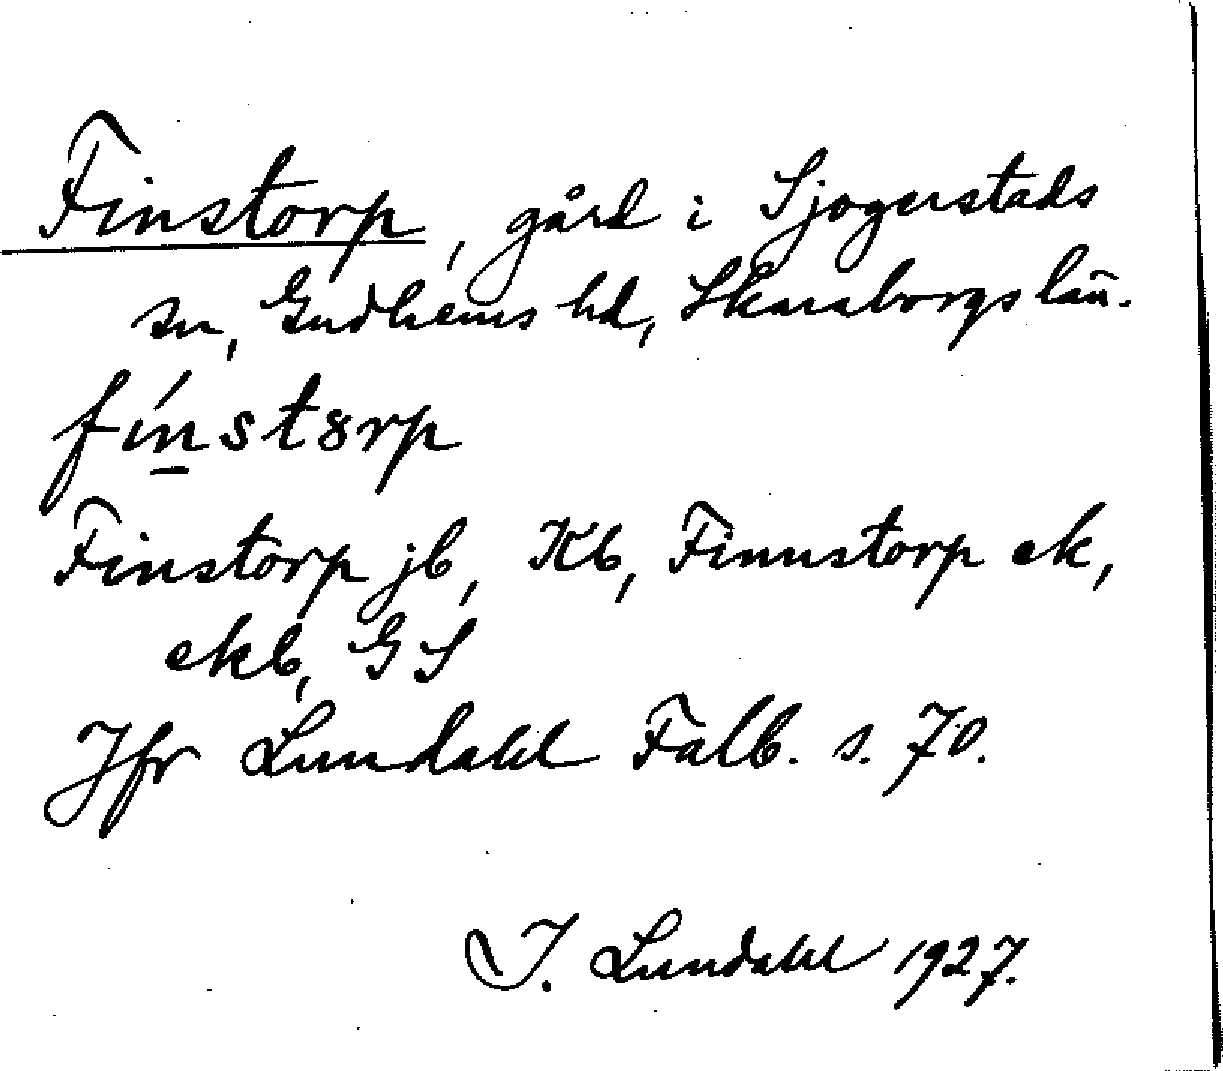 Finstorp, gård i Sjogerstads
sn, Gudhems hd, Skaraborgs län.
fín̲st8rp
Finstorp jb, Kb, Finnstorp ek,
ekb, GS
Jfr Lundahl Falb. s. 70.
I. Lundahl 1927.